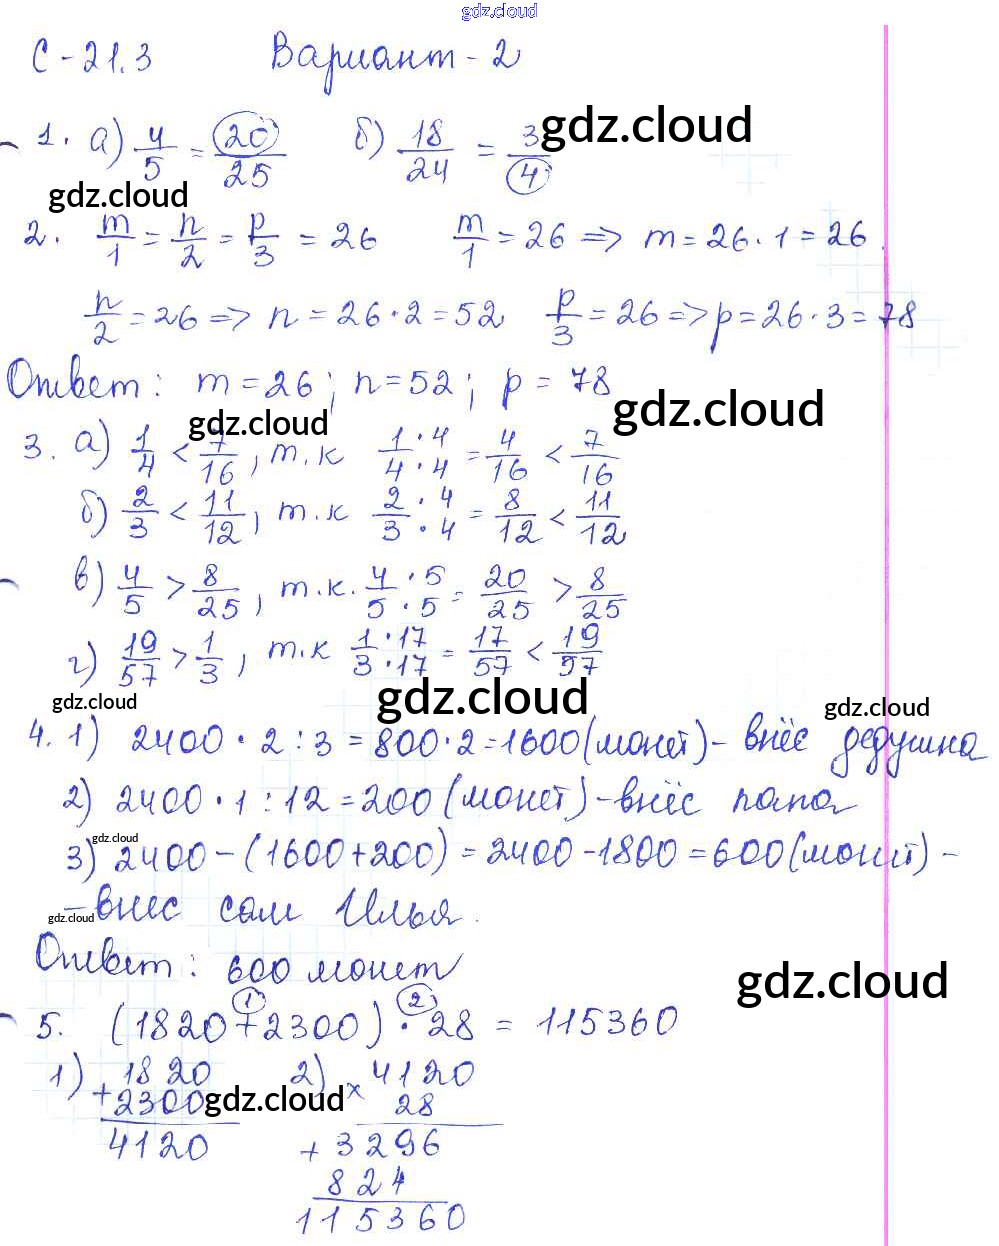 gdz.cloud
С-21.3 Вариант-2
1. а) 4/5 = 20/25 б) 18/24 = 3/4 gdz.cloud
gdz.cloud
2. m/1 = n/2 = p/3 = 26 m/1 = 26 => m = 26 · 1 = 26.
n/2 = 26 => n = 26 · 2 = 52 p/3 = 26 => p = 26 · 3 = 78
Ответ: m = 26; n = 52; p = 78 gdz.cloud
gdz.cloud
3. а) 1/4 < 7/16, т.к 1·4/4·4 = 4/16 < 7/16
б) 2/3 < 11/12, т.к 2·4/3·4 = 8/12 < 11/12
в) 4/5 > 8/25, т.к. 4·5/5·5 = 20/25 > 8/25
г) 19/57 > 1/3, т.к 1·17/3·17 = 17/57 < 19/97
gdz.cloud gdz.cloud gdz.cloud
4. 1) 2400 · 2 : 3 = 800 · 2 = 1600 (монет) - внёс дедушка
2) 2400 · 1 : 12 = 200 (монет) - внёс папа
gdz.cloud
3) 2400 - (1600 + 200) = 2400 - 1800 = 600 (монет) -
gdz.cloud - внес сам Илья.
Ответ: 600 монет
gdz.cloud
1 2
5. (1820 + 2300) · 28 = 115360
1) 1820 2) 4120
+ 2300 gdz.cloud × 28
4120 + 3296
824
115360